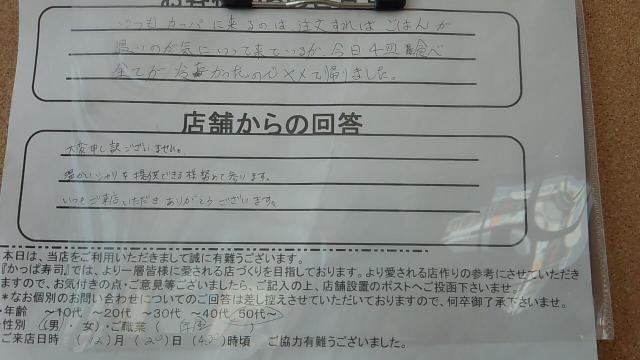 いつもカッパに来るのは注文すればごはんが
温いのが気にいって来ているが、今日4皿食べ
全てが冷めたかったのでヤメて帰りました。
店舗からの回答
大変申し訳ございません。
温かいシャリを提供できる様努めて参ります。
いつもご来店いただきありがとうございます。
本日は、当店をご利用いただきまして誠に有難うございます。
『かっぱ寿司』では、より一層皆様に愛される店づくりを目指しております。より愛される店作りの参考にさせていただき
ますので、お気付きの点・ご意見等ございましたら、ご記入の上、店舗設置のポストへご投函下さいませ。
*なお個別のお問い合わせについてのご回答は差し控えさせていただいておりますので、何卒御了承下さいませ。
・年齢 ～10代 ～20代 ～30代 ～40代 50代～
・性別 (男・女)・ご職業 ( )
ご来店日時 (12)月(20)日( )時頃 ご協力有難うございました。